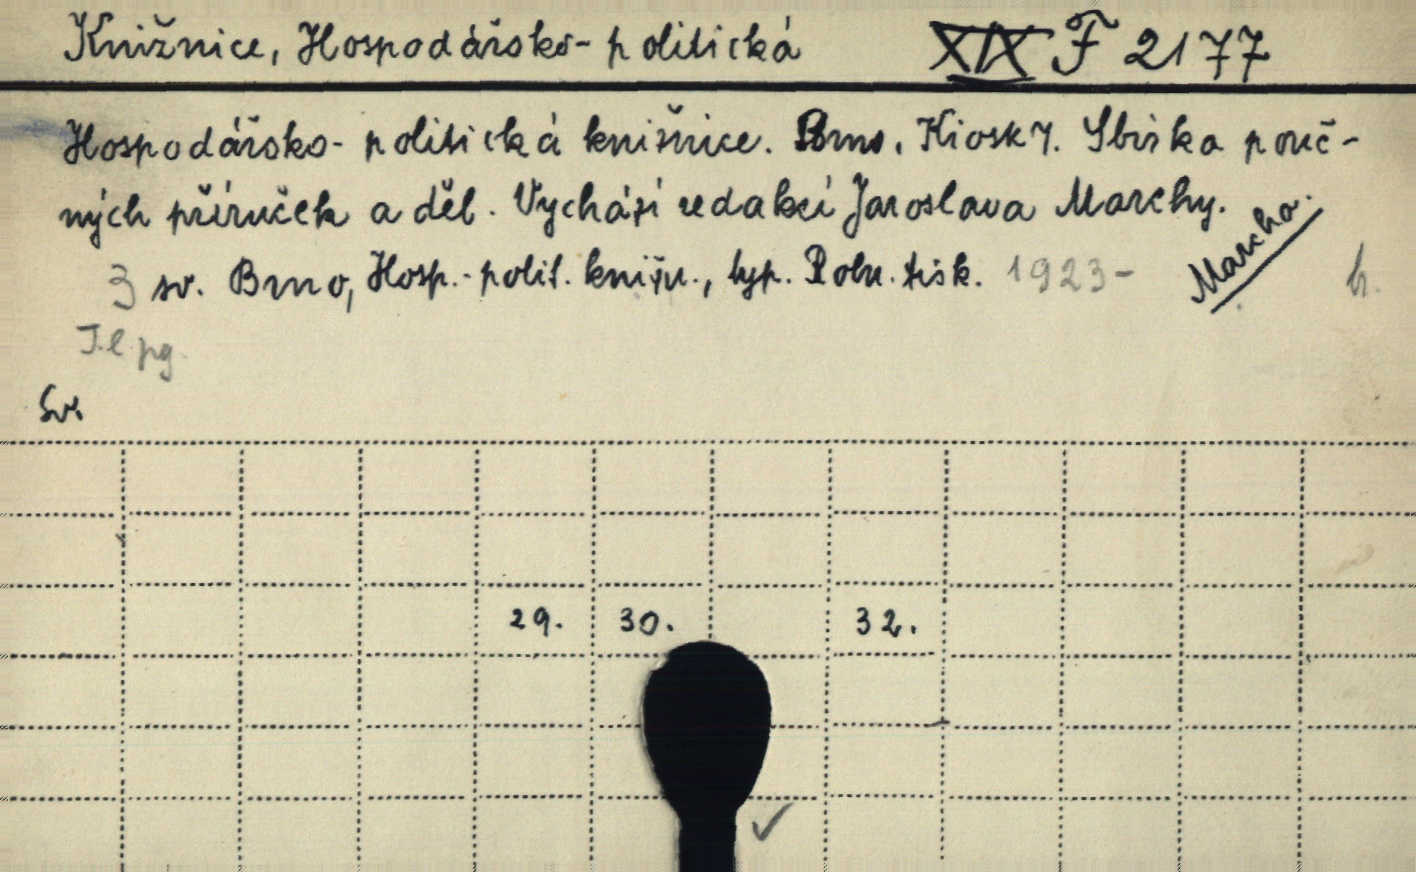 Knižnice, Hospodářsko-politická XIX F 2177
Hospodářsko-politická knižnice. Brno. Kiosk 7. Sbírka pouč-
ných příruček a děl. Vychází redakcí Jaroslava Marchy.
Marcha.
3 sv. Brno, Hosp.-polit. knižn., typ. Poln. tisk. 1923-
Sv.
29. 30. 32.